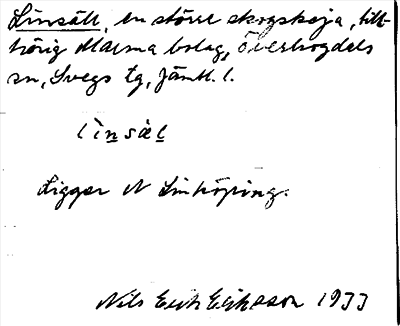 Linsäll, en större skogskoja, till-
hörig Marma bolag, Överhogdals
sn, Svegs tg, Jämtl. l.
lìnsäl
Ligger N Linköping.
Nils Erik Eriksson 1933